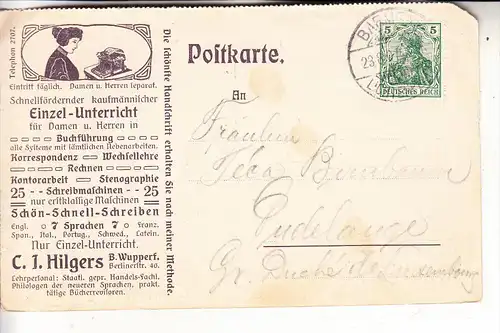 Telephon 2707.
Eintritt täglich. Damen u. Herren separat.
Schnellfördernder kaufmännischer
Einzel-Unterricht
für Damen u. Herren in
Buchführung
alle Systeme mit sämtlichen Nebenarbeiten.
Korrespondenz Wechsellehre
Rechnen
Kontorarbeit Stenographie
25 - - Schreibmaschinen - - 25
nur erstklassige Maschinen
Schön-Schnell-Schreiben
Engl. 7 Sprachen 7 Franz.
Span., Ital., Portug., Schwed., Latein.
Nur Einzel-Unterricht.
C. J. Hilgers B. Wupperf.
Berlinerstr. 46.
Lehrpersonal: Staatl. gepr. Handels-Fachl.
Philologen der neueren Sprachen, prakt.
tätige Bücherrevisoren.
Die schönste Handschrift erhalten Sie nach meiner Methode.
Postkarte.
An
5 5
DEUTSCHES REICH
Fräulein
Dudelange
Gr. Duché de Luxembourg